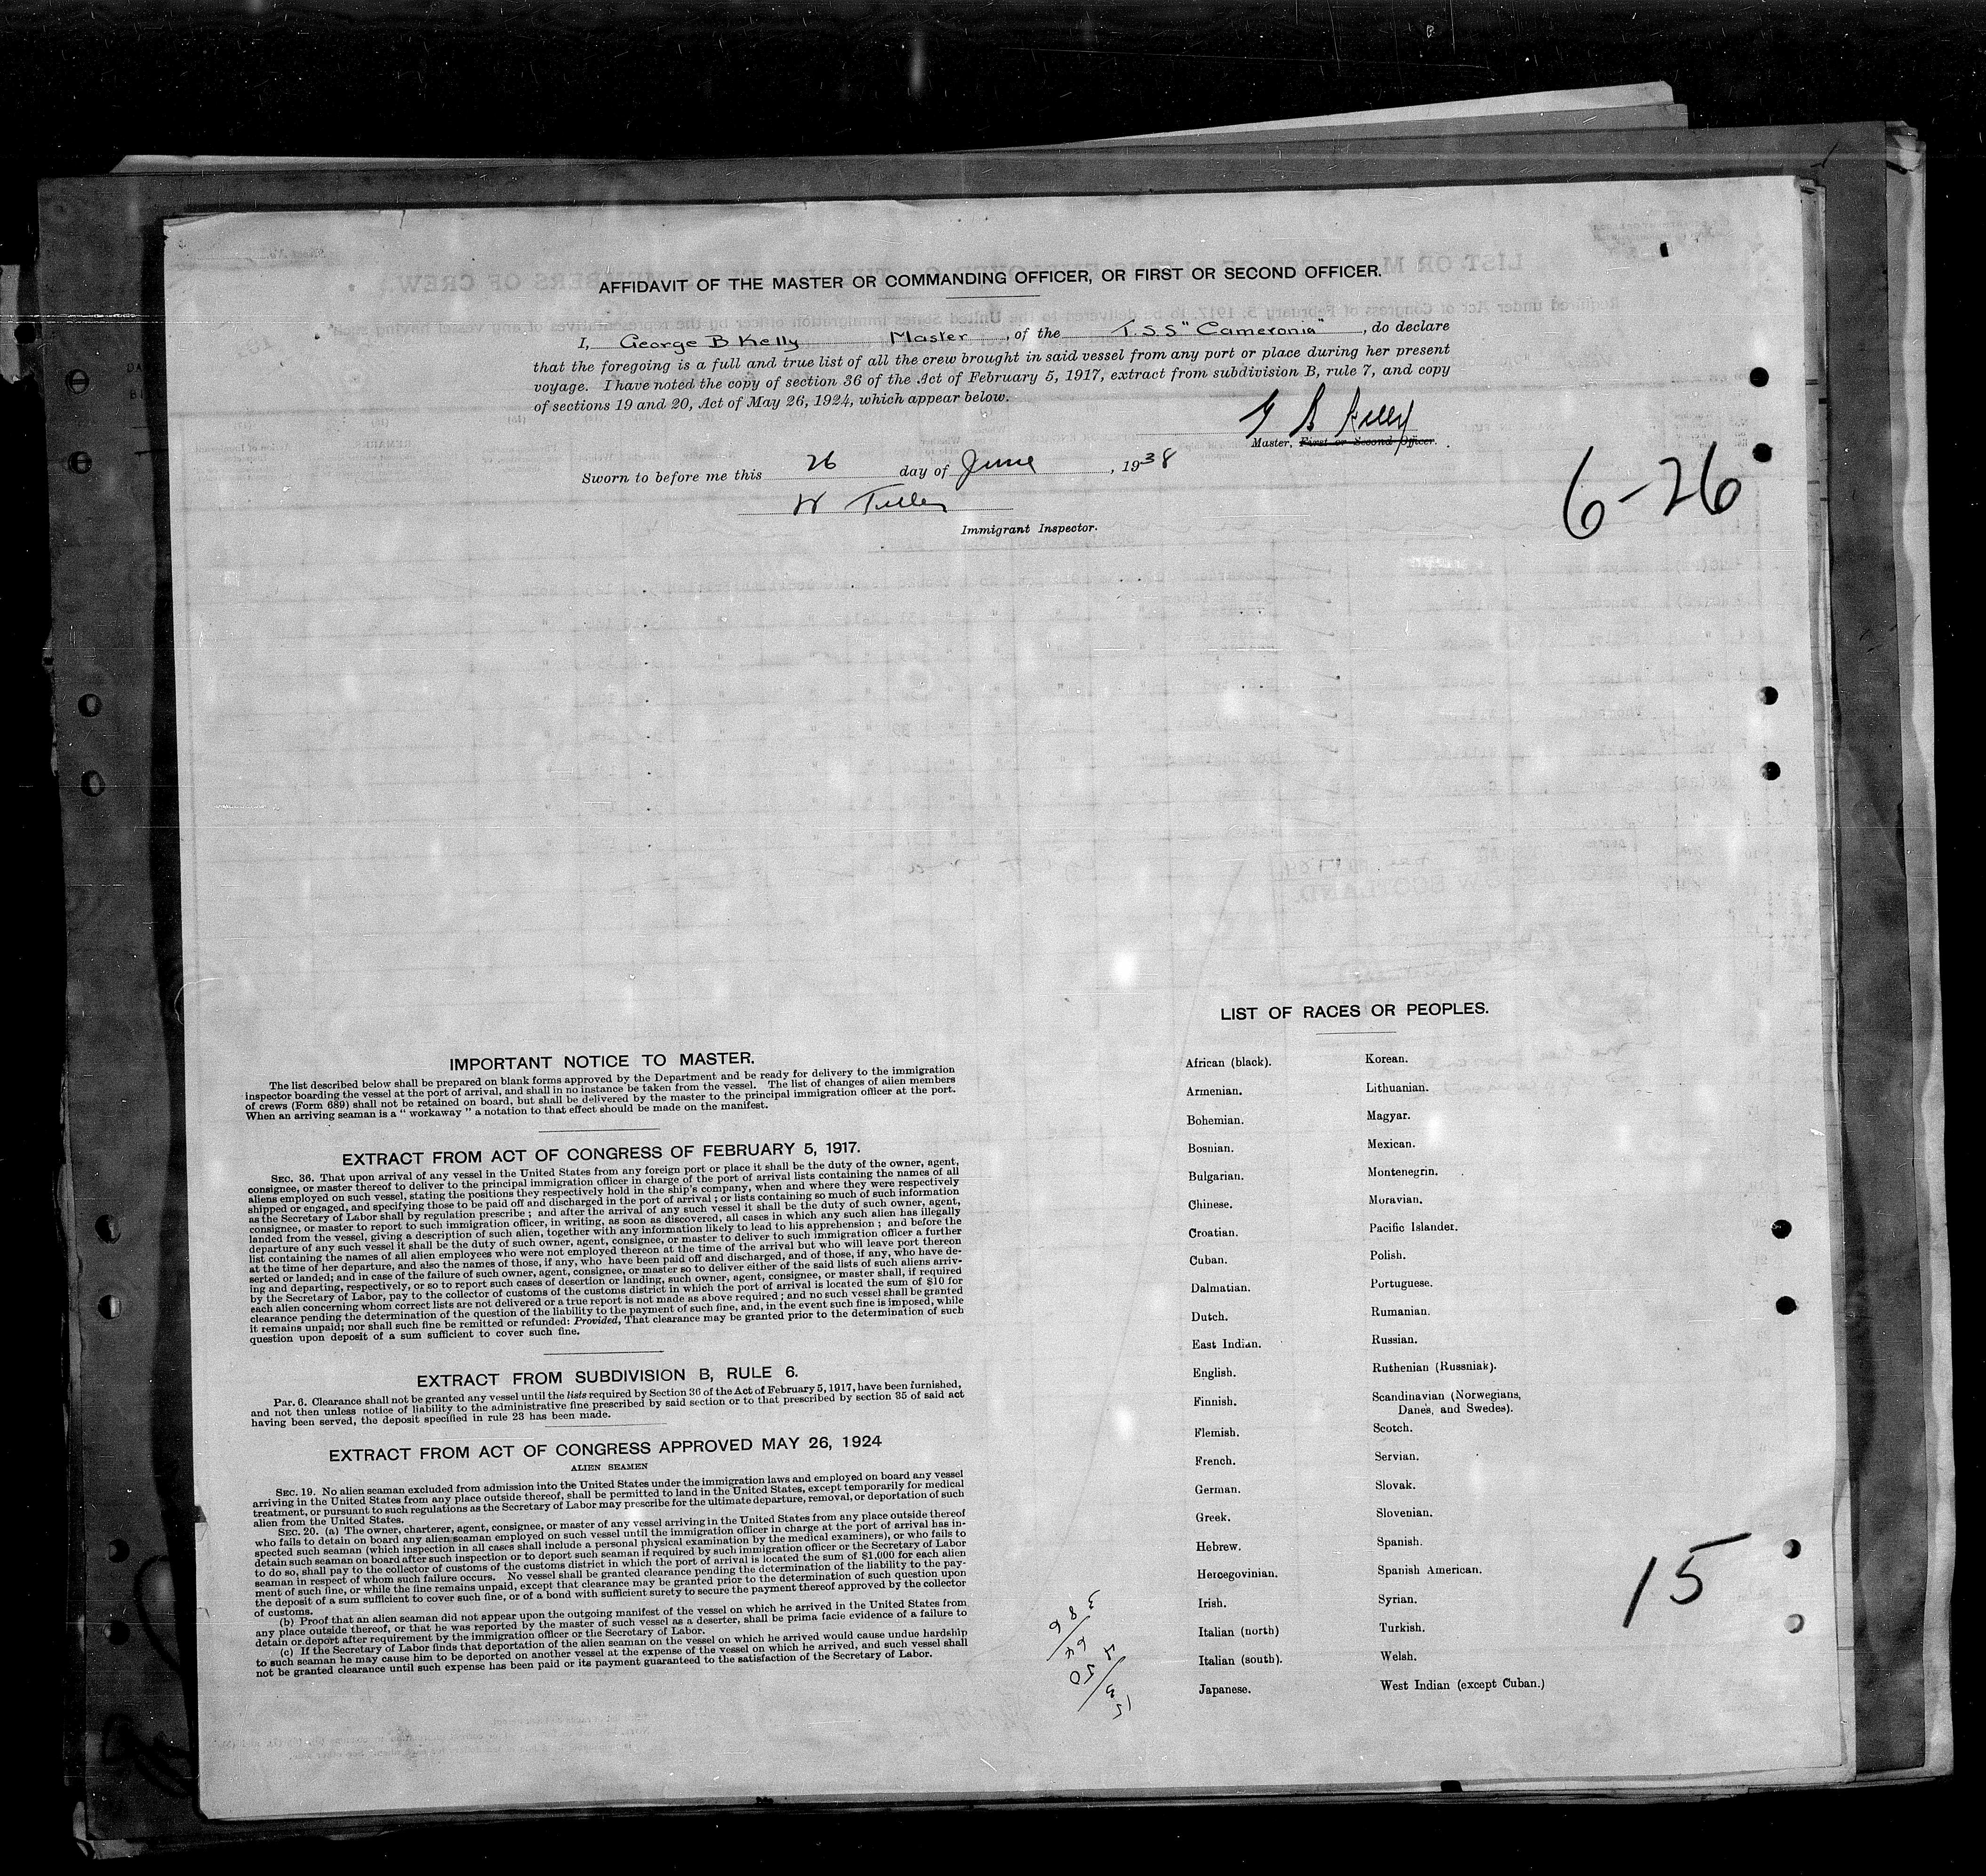 AFFIDAVIT OF THE MASTER OR COMMANDING OFFICER, OR FIRST OR SECOND OFFICER.
I, George B Kelly Master, of the T.S.S "Cameronia", do declare
that the foregoing is a full and true list of all the crew brought in said vessel from any port or place during her present
voyage. I have noted the copy of section 36 of the Act of February 5, 1917, extract from subdivision B, rule 7, and copy
of sections 19 and 20, Act of May 26, 1924, which appear below.
G B Kelly
Master, First or Second Officer.
Sworn to before me this 26 day of June, 1938
6-26
W
Immigrant Inspector.
IMPORTANT NOTICE TO MASTER.
The list described below shall be prepared on blank forms approved by the Department and be ready for delivery to the immigration
inspector boarding the vessel at the port of arrival, and shall in no instance be taken from the vessel. The list of changes of alien members
of crews (Form 689) shall not be retained on board, but shall be delivered by the master to the principal immigration officer at the port.
When an arriving seaman is a "workaway" a notation to that effect should be made on the manifest.
EXTRACT FROM ACT OF CONGRESS OF FEBRUARY 5, 1917.
SEC. 36. That upon arrival of any vessel in the United States from any foreign port or place it shall be the duty of the owner, agent,
consignee, or master thereof to deliver to the principal immigration officer in charge of the port of arrival lists containing the names of all
aliens employed on such vessel, stating the positions they respectively hold in the ship's company, when and where they were respectively
shipped or engaged, and specifying those to be paid off and discharged in the port of arrival; or lists containing so much of such information
as the Secretary of Labor shall by regulation prescribe; and after the arrival of any such vessel it shall be the duty of such owner, agent,
consignee, or master to report to such immigration officer, in writing, as soon as discovered, all cases in which any such alien has illegally
landed from the vessel, giving a description of such alien, together with any information likely to lead to his apprehension; and before the
departure of any such vessel it shall be the duty of such owner, agent, consignee, or master to deliver to such immigration officer a further
list containing the names of all alien employees who were not employed thereon at the time of the arrival but who will leave port thereon
at the time of her departure, and also the names of those, if any, who have been paid off and discharged, and of those, if any, who have de-
serted or landed; and in case of the failure of such owner, agent, consignee, or master so to deliver either of the said lists of such aliens arriv-
ing and departing, respectively, or so to report such cases of desertion or landing, such owner, agent, consignee, or master shall, if required
by the Secretary of Labor, pay to the collector of customs of the customs district in which the port of arrival is located the sum of $10 for
each alien concerning whom correct lists are not delivered or a true report is not made as above required; and no such vessel shall be granted
clearance pending the determination of the question of the liability to the payment of such fine, and, in the event such fine is imposed, while
it remains unpaid; nor shall such fine be remitted or refunded: Provided, That clearance may be granted prior to the determination of such
question upon deposit of a sum sufficient to cover such fine.
EXTRACT FROM SUBDIVISION B, RULE 6.
Par. 6. Clearance shall not be granted any vessel until the lists required by Section 36 of the Act of February 5, 1917, have been furnished,
and not then unless notice of liability to the administrative fine prescribed by said section or to that prescribed by section 35 of said act
having been served, the deposit specified in rule 23 has been made.
EXTRACT FROM ACT OF CONGRESS APPROVED MAY 26, 1924
ALIEN SEAMEN
SEC. 19. No alien seaman excluded from admission into the United States under the immigration laws and employed on board any vessel
arriving in the United States from any place outside thereof, shall be permitted to land in the United States, except temporarily for medical
treatment, or pursuant to such regulations as the Secretary of Labor may prescribe for the ultimate departure, removal, or deportation of such
alien from the United States.
SEC. 20. (a) The owner, charterer, agent, consignee, or master of any vessel arriving in the United States from any place outside thereof
who fails to detain on board any alien seaman employed on such vessel until the immigration officer in charge at the port of arrival has in-
spected such seaman (which inspection in all cases shall include a personal physical examination by the medical examiners), or who fails to
detain such seaman on board after such inspection or to deport such seaman if required by such immigration officer or the Secretary of Labor
to do so, shall pay to the collector of customs of the customs district in which the port of arrival is located the sum of $1,000 for each alien
seaman in respect of whom such failure occurs. No vessel shall be granted clearance pending the determination of the liability to the pay-
ment of such fine, or while the fine remains unpaid, except that clearance may be granted prior to the determination of such question upon
the deposit of a sum sufficient to cover such fine, or of a bond with sufficient surety to secure the payment thereof approved by the collector
of customs.
(b) Proof that an alien seaman did not appear upon the outgoing manifest of the vessel on which he arrived in the United States from
any place outside thereof, or that he was reported by the master of such vessel as a deserter, shall be prima facie evidence of a failure to
detain or deport after requirement by the immigration officer or the Secretary of Labor.
(c) If the Secretary of Labor finds that deportation of the alien seaman on the vessel on which he arrived would cause undue hardship
to such seaman he may cause him to be deported on another vessel at the expense of the vessel on which he arrived, and such vessel shall
not be granted clearance until such expense has been paid or its payment guaranteed to the satisfaction of the Secretary of Labor.
LIST OF RACES OR PEOPLES.
African (black).
Armenian.
Bohemian.
Bosnian.
Bulgarian.
Chinese.
Croatian.
Cuban.
Dalmatian.
Dutch.
East Indian.
English.
Finnish.
Flemish.
French.
German.
Greek.
Hebrew.
Hercegovinian.
Irish.
Italian (north)
Italian (south).
Japanese.
Korean.
Lithuanian.
Magyar.
Mexican.
Montenegrin.
Moravian.
Pacific Islander.
Polish.
Portuguese.
Rumanian.
Russian.
Ruthenian (Russniak).
Scandinavian (Norwegians,
Danes, and Swedes).
Scotch.
Servian.
Slovak.
Slovenian.
Spanish.
Spanish American.
Syrian.
Turkish.
Welsh.
West Indian (except Cuban.)
15